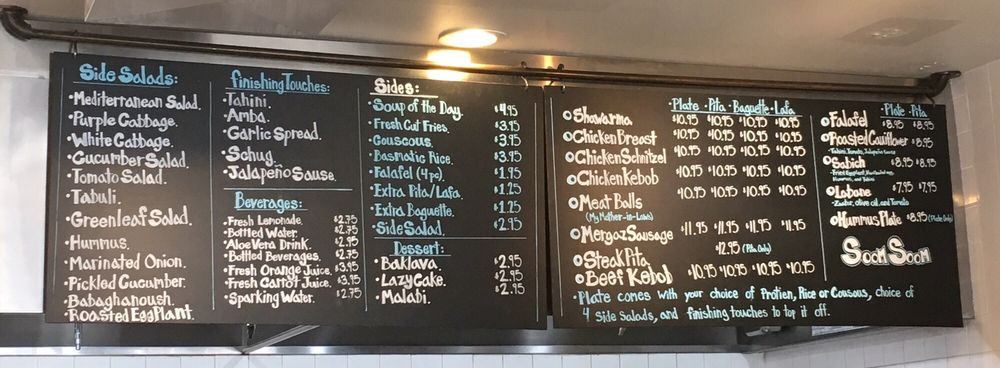 Side Salads:
•Mediterranean Salad.
•Purple Cabbage.
White Cabbage.
•Cucumber Salad.
•Tomato Salad.
Tabuli.
•Greenleaf Salad.
•Hummus.
•Marinated Onion.
•Pickled Cucumber.
•Babaghanoush.
•Roasted EggPlant.
finishing Touches:
•Tahini.
•Amba.
•Garlic Spread.
•Schug.
•Jalapeño Sause.
Beverages:
•Fresh Lemonade. $2.75
•Bottled Water. $2.75
•Aloe Vera Drink. $2.95
•Bottled Beverages. $2.75
•Fresh Orange Juice. $3.95
•Fresh Carrot Juice. $3.95
•Sparking Water. $2.75
Sides:
Soup of the Day. $4.95
•Fresh Cut Fries. $3.95
•Couscous. $3.95
•Basmatic Rice. $3.95
•Falafel (4pc). $1.95
•Extra Pita/Lafa. $1.25
•Extra Baguette. $1.25
•Side Salad. $2.95
Dessert:
•Baklava. $2.95
•Lazy Cake. $2.95
•Malabi. $2.95
•Plate •Pita •Baguette •Lafa
Shawarma $10.95 $10.95 $10.95 $10.95
Chicken Breast $10.95 $10.95 $10.95 $10.95
Chicken Schnitzel $10.95 $10.95 $10.95 $10.95
Chicken Kebob $10.95 $10.95 $10.95 $10.95
Meat Balls $10.95 $10.95 $10.95 $10.95
(My Mother-in-Laws)
Mergaz Sausage $11.95 $11.95 $11.95 $11.95
Steak Pita $12.95 (Pita Only)
Beef Kebob $10.95 $10.95 $10.95 $10.95
•Plate •Pita
Falafel $8.95 $8.95
Roasted Cauliflower $8.95
•Tahini, Tomato, Jalapeño Sauce
Sabich $8.95 $8.95
Hummus, and Tahini
Labane $7.95 $7.95
•Zaatar, olive oil, and Tomato
Hummus Plate $8.95 (Plate Only)
Soom Soom
•Plate comes with your choice of Protien, Rice or Cousous, choice of
4 Side Salads, and finishing touches to top it off.